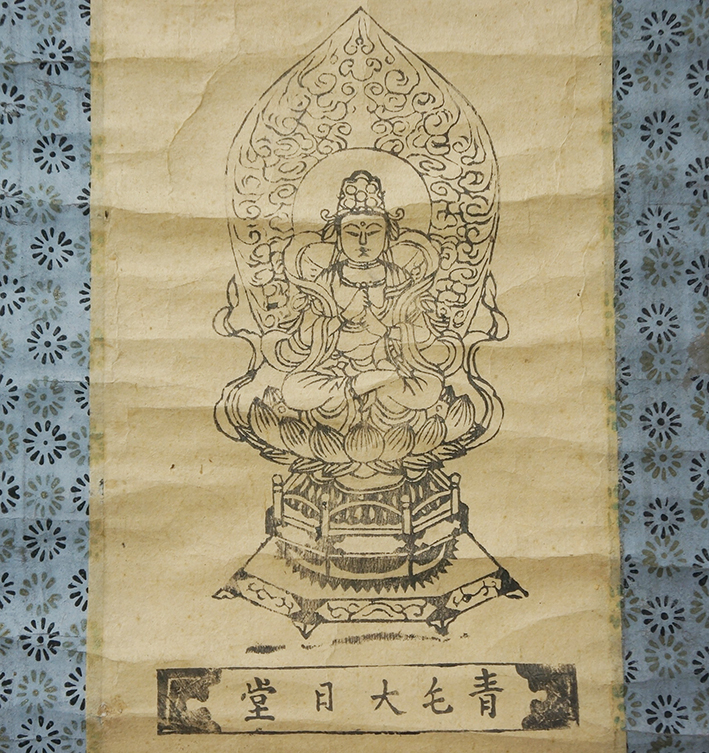 青毛大日堂